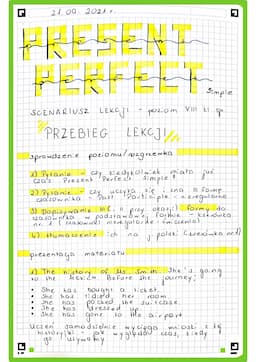 21.09.2021 r.
PRESENT
PERFECT
Simple
SCENARIUSZ LEKCJI - poziom VIII kl sp
PRZEBIEG LEKCJI
sprawdzenie poziomu/rozgrzewka
1) Pytanie - czy kiedykolwiek miało już
czas Present Perfect Simple?
2) Pytanie - czy uczyła się i zna III formę
czasownika - Past Participle - nieregularne
3) Dopisywanie III
czasownika w podstawowej formie
nr 1 (czasowniki nieregularne i znaczenie)
4) tłumaczenie ich na j. polski
prezentacja materiału
1) The history of Ms. Smith. She's going
to the Before she journey;
• She has bought a ticket.
• She has tidied her room
• She has packed the suitcase.
• She has dressed up.
• She has gone to the airport
Uczeń samodzielnie wyciąga wnioski z tej
historyjki - jak wyglądał czas, kiedy i
go używamy